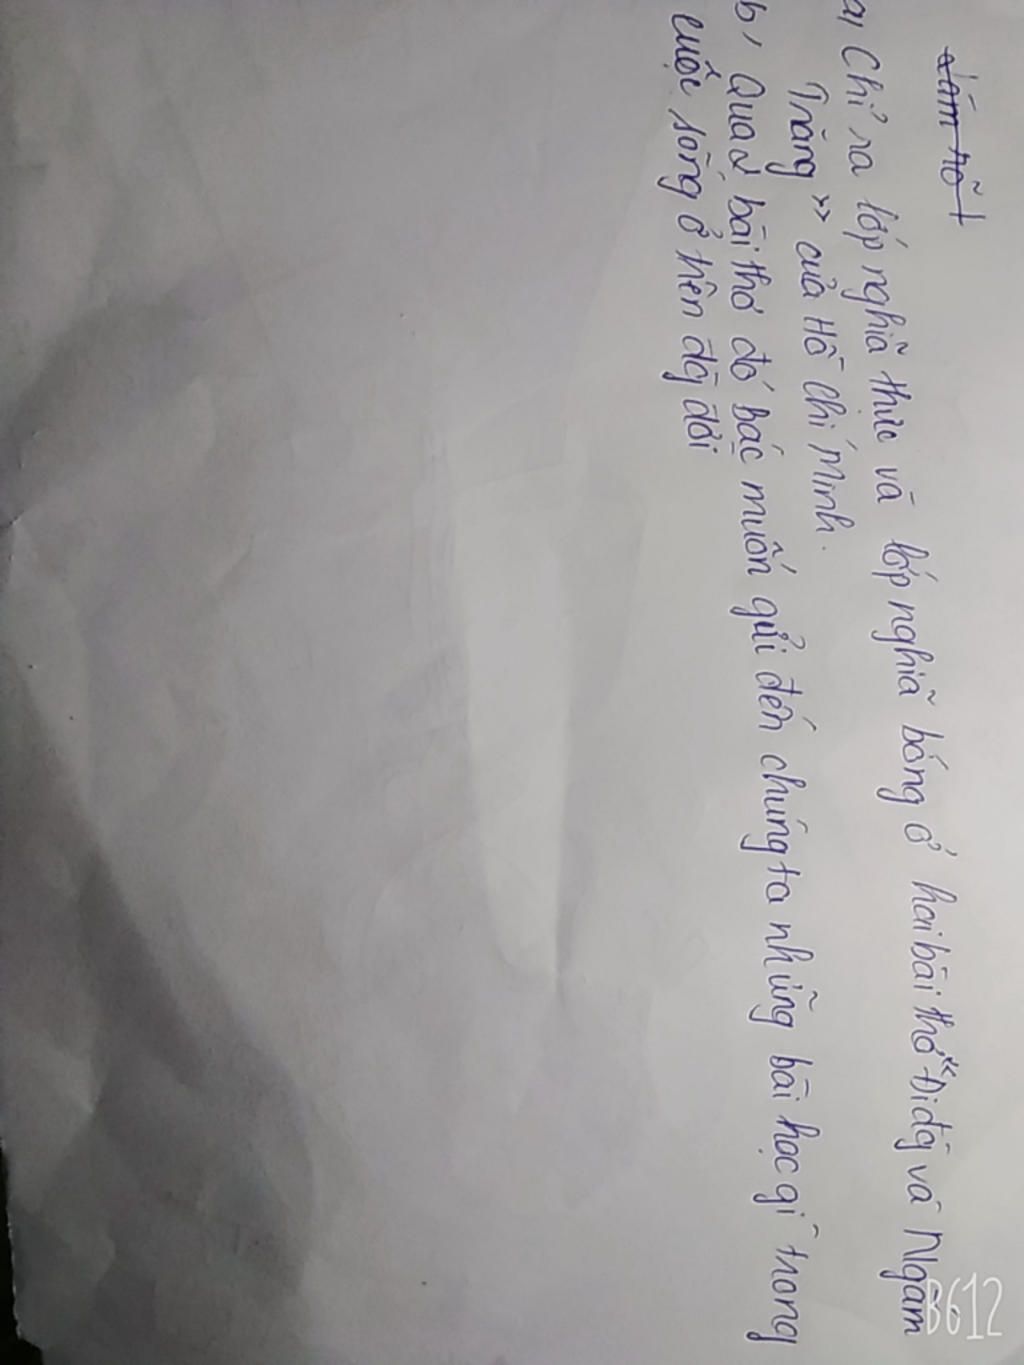 Làm rõ 1
a, Chỉ ra lớp nghĩa thực và lớp nghĩa bóng ở hai bài thơ "Đi đg và Ngắm
Trăng" của Hồ Chí Minh.
b, Qua 2 bài thơ đó bác muốn gửi đến chúng ta những bài học gì trong
cuộc sống ở trên đg đời
B612